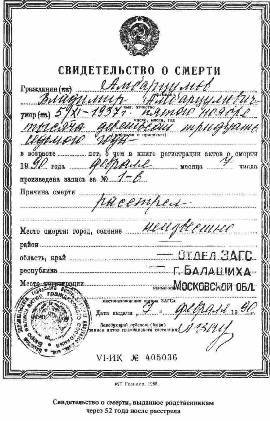 СВИДЕТЕЛЬСТВО О СМЕРТИ
Гражданин(ка) Амбарцумов
Владимир Амбарцумович
умер(ла) 5/XI-1937 пятого ноября
тысяча девятьсот тридцать
седьмого года
в возрасте лет, о чем в книге регистрации актов о смерти
19 года февраля месяца числа
произведена запись за № 1-в
Причина смерти
расстрел
Место смерти: город, селение неизвестно
район
область, край
ОТДЕЛ ЗАГС
республика
г. БАЛАШИХА
Место регистрации
МОСКОВСКОЙ ОБЛ.
наименование органа ЗАГСа
Дата выдачи февраля 19 г.
Заведующий отделом (бюро)
записи актов гражданского состояния
VI-ИК № 405036
Свидетельство о смерти, выданное родственникам
через 52 года после расстрела